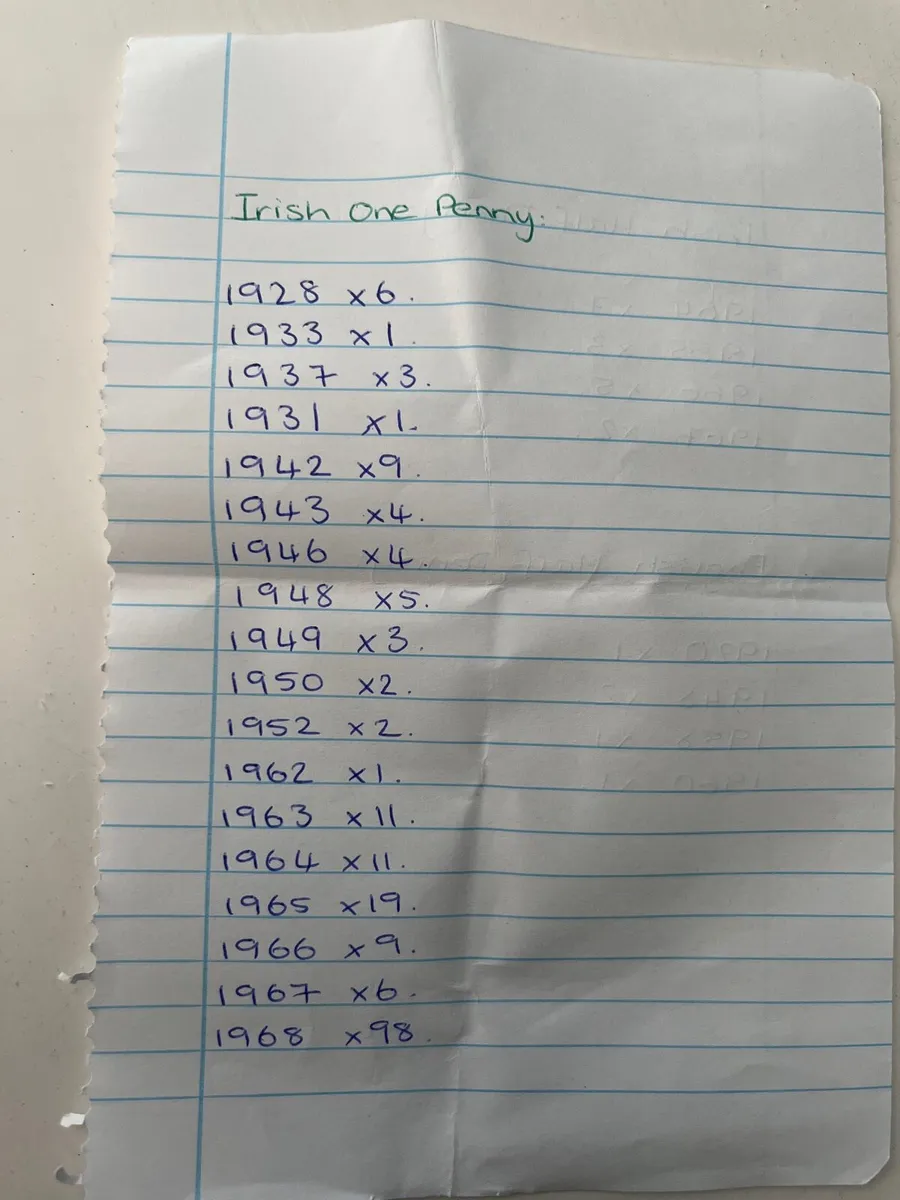 Irish One Penny.
1928 x6.
1933 x1.
1937 x3.
1931 x1.
1942 x9.
1943 x4.
1946 x4.
1948 x5.
1949 x3.
1950 x2.
1952 x2.
1962 x1.
1963 x11.
1964 x11.
1965 x19.
1966 x9.
1967 x6.
1968 x98.